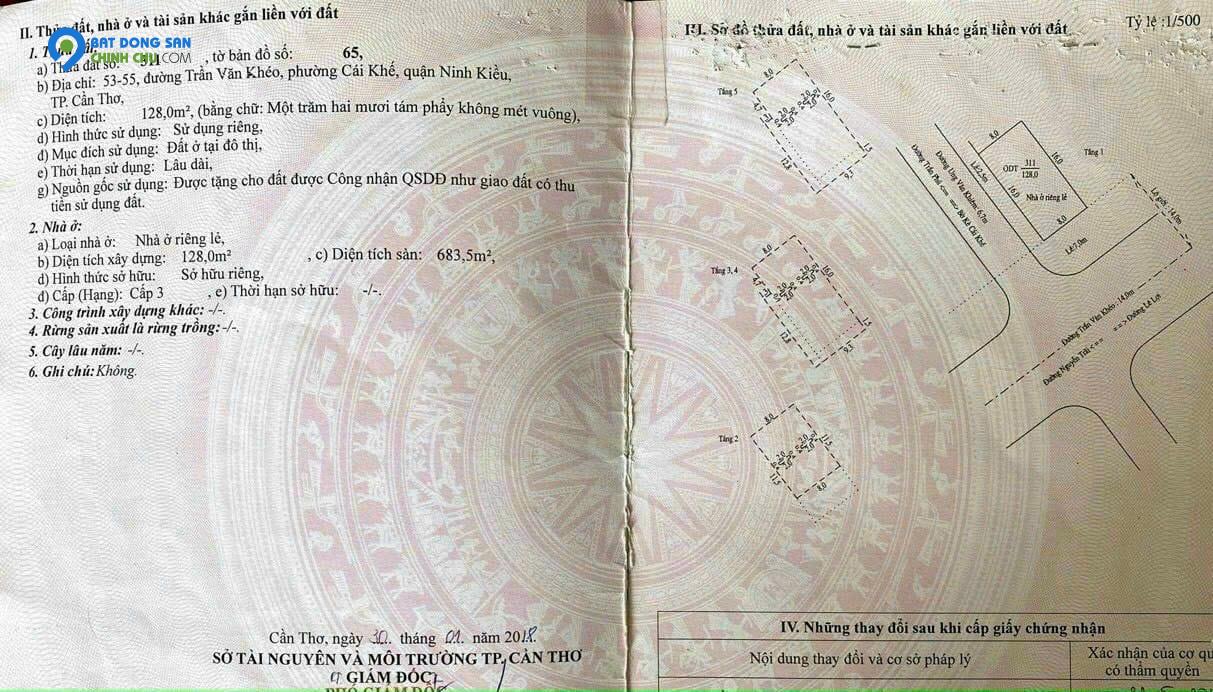 II. Thửa đất, nhà ở và tài sản khác gắn liền với đất
BAT DONG SAN
CHINH CHU.COM
a) Thửa đất số: 311 , tờ bản đồ số: 65,
b) Địa chỉ: 53-55, đường Trần Văn Khéo, phường Cái Khế, quận Ninh Kiều,
TP. Cần Thơ,
c) Diện tích: 128,0m², (bằng chữ: Một trăm hai mươi tám phẩy không mét vuông),
d) Hình thức sử dụng: Sử dụng riêng,
đ) Mục đích sử dụng: Đất ở tại đô thị,
e) Thời hạn sử dụng: Lâu dài,
g) Nguồn gốc sử dụng: Được tặng cho đất được Công nhận QSDĐ như giao đất có thu
tiền sử dụng đất.
2. Nhà ở:
a) Loại nhà ở: Nhà ở riêng lẻ,
b) Diện tích xây dựng: 128,0m² , c) Diện tích sàn: 683,5m²,
d) Hình thức sở hữu: Sở hữu riêng,
đ) Cấp (Hạng): Cấp 3 , e) Thời hạn sở hữu: -/-.
3. Công trình xây dựng khác: -/-.
4. Rừng sản xuất là rừng trồng: -/-.
5. Cây lâu năm: -/-.
6. Ghi chú: Không.
Cần Thơ, ngày 30 tháng 01 năm 2018
SỞ TÀI NGUYÊN VÀ MÔI TRƯỜNG TP. CẦN THƠ
GIÁM ĐỐC
PHÓ GIÁM ĐỐC
III. Sơ đồ thửa đất, nhà ở và tài sản khác gắn liền với đất
Tỷ lệ :1/500
Tầng 5
8,0
16,0
4,5
2,0
2,0
12,8
9,3
Tầng 1
8,0
16,0
ODT 311
128,0
Nhà ở riêng lẻ
16,0
8,0
Lề:2,5m
Đường Ung Văn Khiêm: 6,7m
Đường Trần Phú <== ==> Bờ Kè Cái Khế
Lề:7,0m
Lộ giới : 14,0m
Đường Trần Văn Khéo : 14,0m
Đường Nguyễn Trãi <== ==> Đường Lê Lợi
Tầng 3, 4
8,0
16,0
2,0
2,0
12,8
1,5
9,3
Tầng 2
8,0
11,5
2,0
2,0
11,5
8,0
IV. Những thay đổi sau khi cấp giấy chứng nhận
Nội dung thay đổi và cơ sở pháp lý
Xác nhận của cơ qu
có thẩm quyền